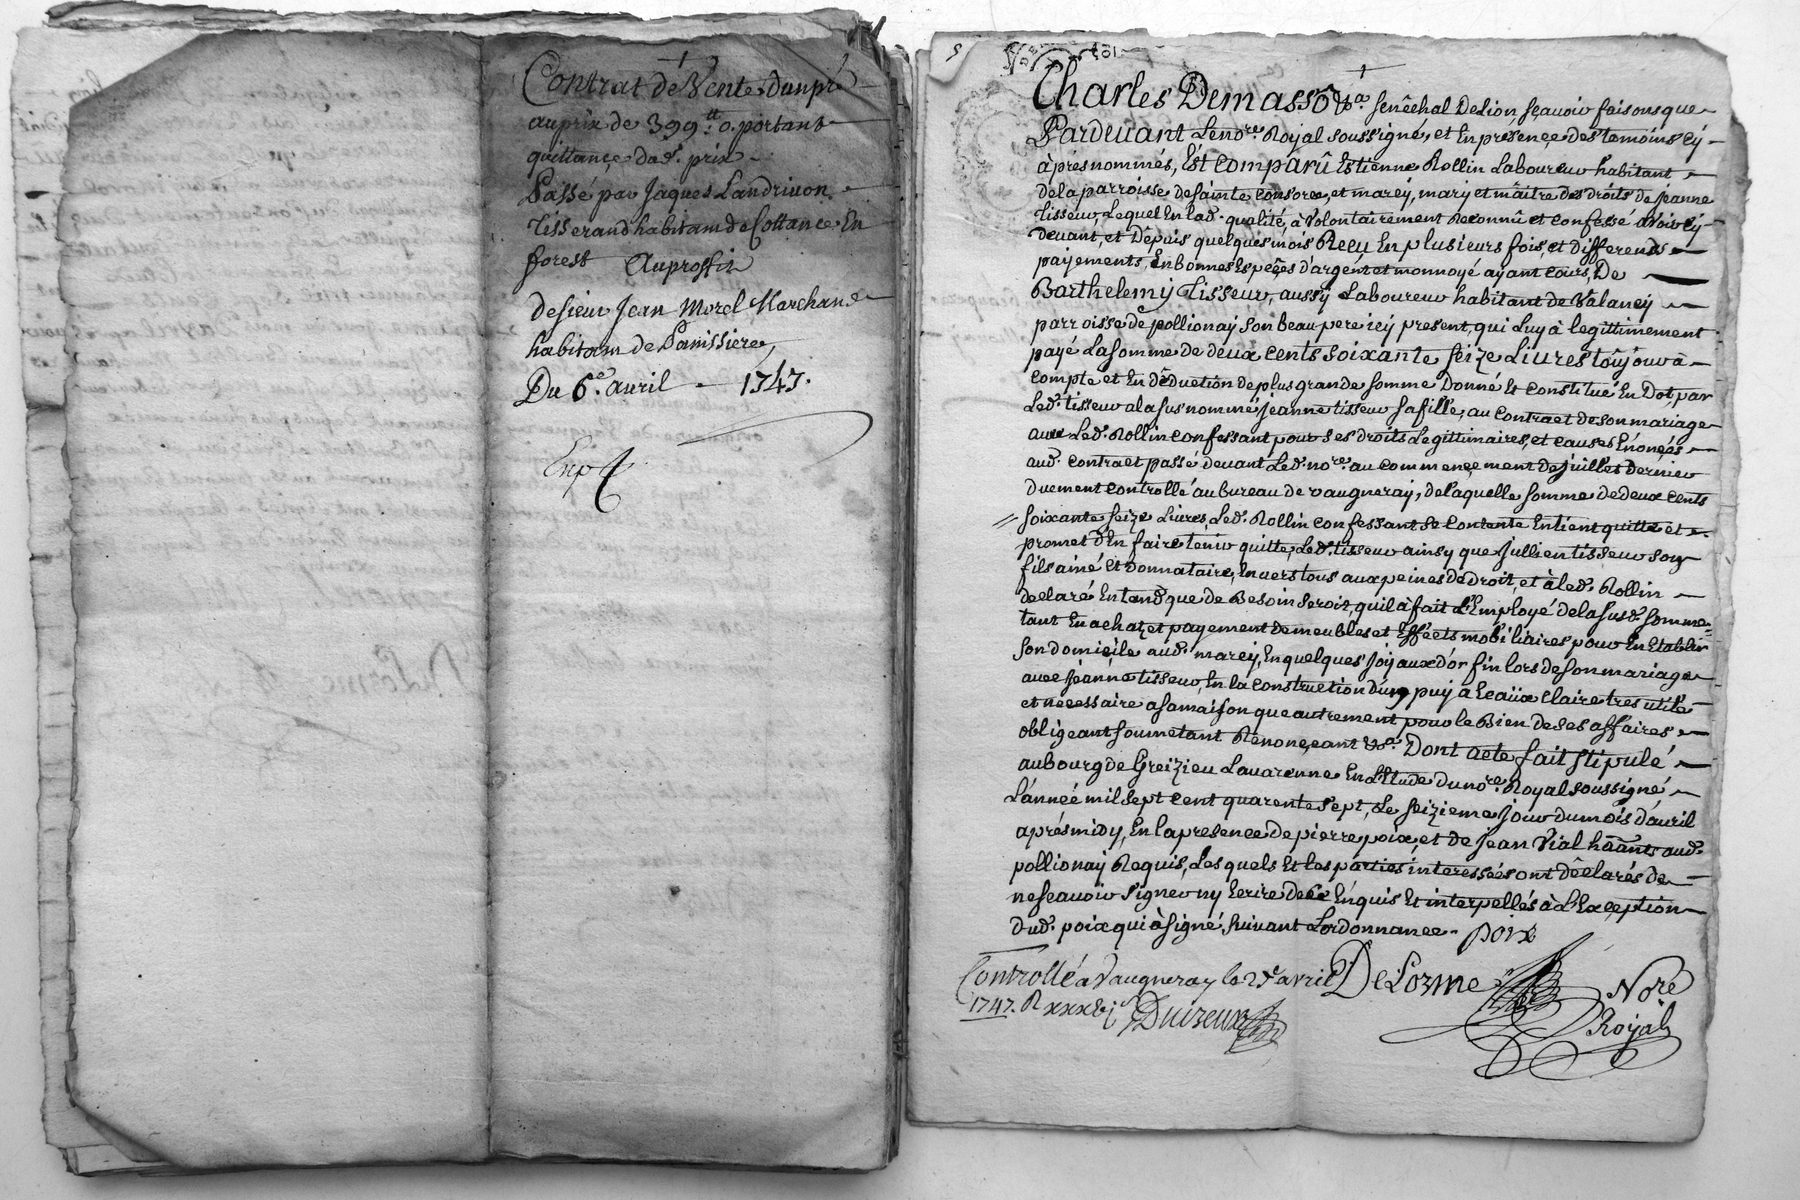 Contrat de Vente dun pré
au prix de 399 tt 0. portant
quittançe dud. prix
Passé par Jaques Landrivon
Tisserand habitant de Cottance En
forest Au proffit
de sieur Jean Morel Marchand
habitant de Panissiere,
Du 6e. avril 1747.
Exp
5
Charles Demassô &a. senêchal De Lion sçavoir faisons que
Pardevant Le nore. Royal soussigné, et En presençe des temoins cy
après nommés, Est Comparû Estienne Rollin Laboureur habitant
de la parroisse de sainte Consorce, et marcy, mary et maître des droits de jeanne
Tisseur, Lequel En lad. qualité, à Volontairement Reconnû et confessé avoir cy
devant, et Dêpuis quelques mois Reçu En plusieurs fois, et differends
paijements, En bonnes Espeçes d'argent et monnoyé ayant cours, De
Barthelemy Tisseur, aussy Laboureur habitant de Valancy
parroisse de pollionay son beau pere icy present, qui Luy à legittimement
payé La somme de deux cents soixante seize Livres toûjour à
compte et En dêduction de plus grande somme Donné Et Constitué En Dot, par
Led. tisseur a la sus nommé jeanne tisseur sa fille, au Contract de son mariage
avec Led. Rollin confessant pour ses droits Legittimaires, et causes Enonçés
aud. contract passé devant Led. nore. au commençement de juillet dernier
duement controllé au bureau de vaugneray, de laquelle somme de deux cents
soixante seize Livres, Led. Rollin confessant se contente En tient quitte et
promet d'En faire tenir quitte, Led. tisseur ainsy que jullien tisseur son
fils ainé Et donnataire, Envers tous aux peines de droit, et à led. Rollin
declaré En tand que de Besoin seroit, qu'il à fait L'Employé de la susd. somme
tant En achat, et payement de meubles et Effects mobiliaires pour En Etablir
son domicile aud. marcy, En quelques joijaux d'or fin lors de son mariage
avec jeanne tisseur, En la construction d'un puy à Eaüx Claire tres utile
et necessaire a sa maison que autrement pour le Bien de ses affaires
obligeant soumetant Renonçeant &a. Dont acte fait stipulé
au bourg de Greizieu Lavarenne En L'Etude du nore. Royal soussigné
L'année mil sept cent quarente sept, Le seizieme jour du mois d'avril
aprés midy, En la presence de pierre poix, et de Jean Vial hâânts aud.
pollionay Requis, Lesquels Et les parties interessées ont dêclarés de
ne sçavoir signer ny Ecrire de ce Enquis Et interpellés à L'Exception
dud. poix qui à signé, suivant L'ordonnance. poix
Controllé a Vaugneray le avril DeLorme Nore
1747. R xxxvi s Duizeux Royal